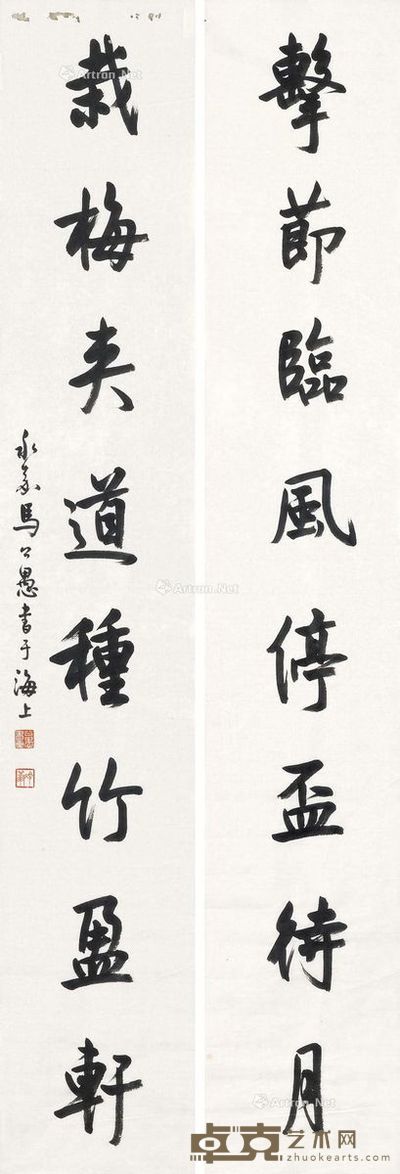 擊節臨風停盃待月
栽梅夾道種竹盈軒
永嘉馬公愚書于海上
Artron.Net
Artron.Net
Artron.Net
Artron.Net
卓克艺术网
zhuokearts.com